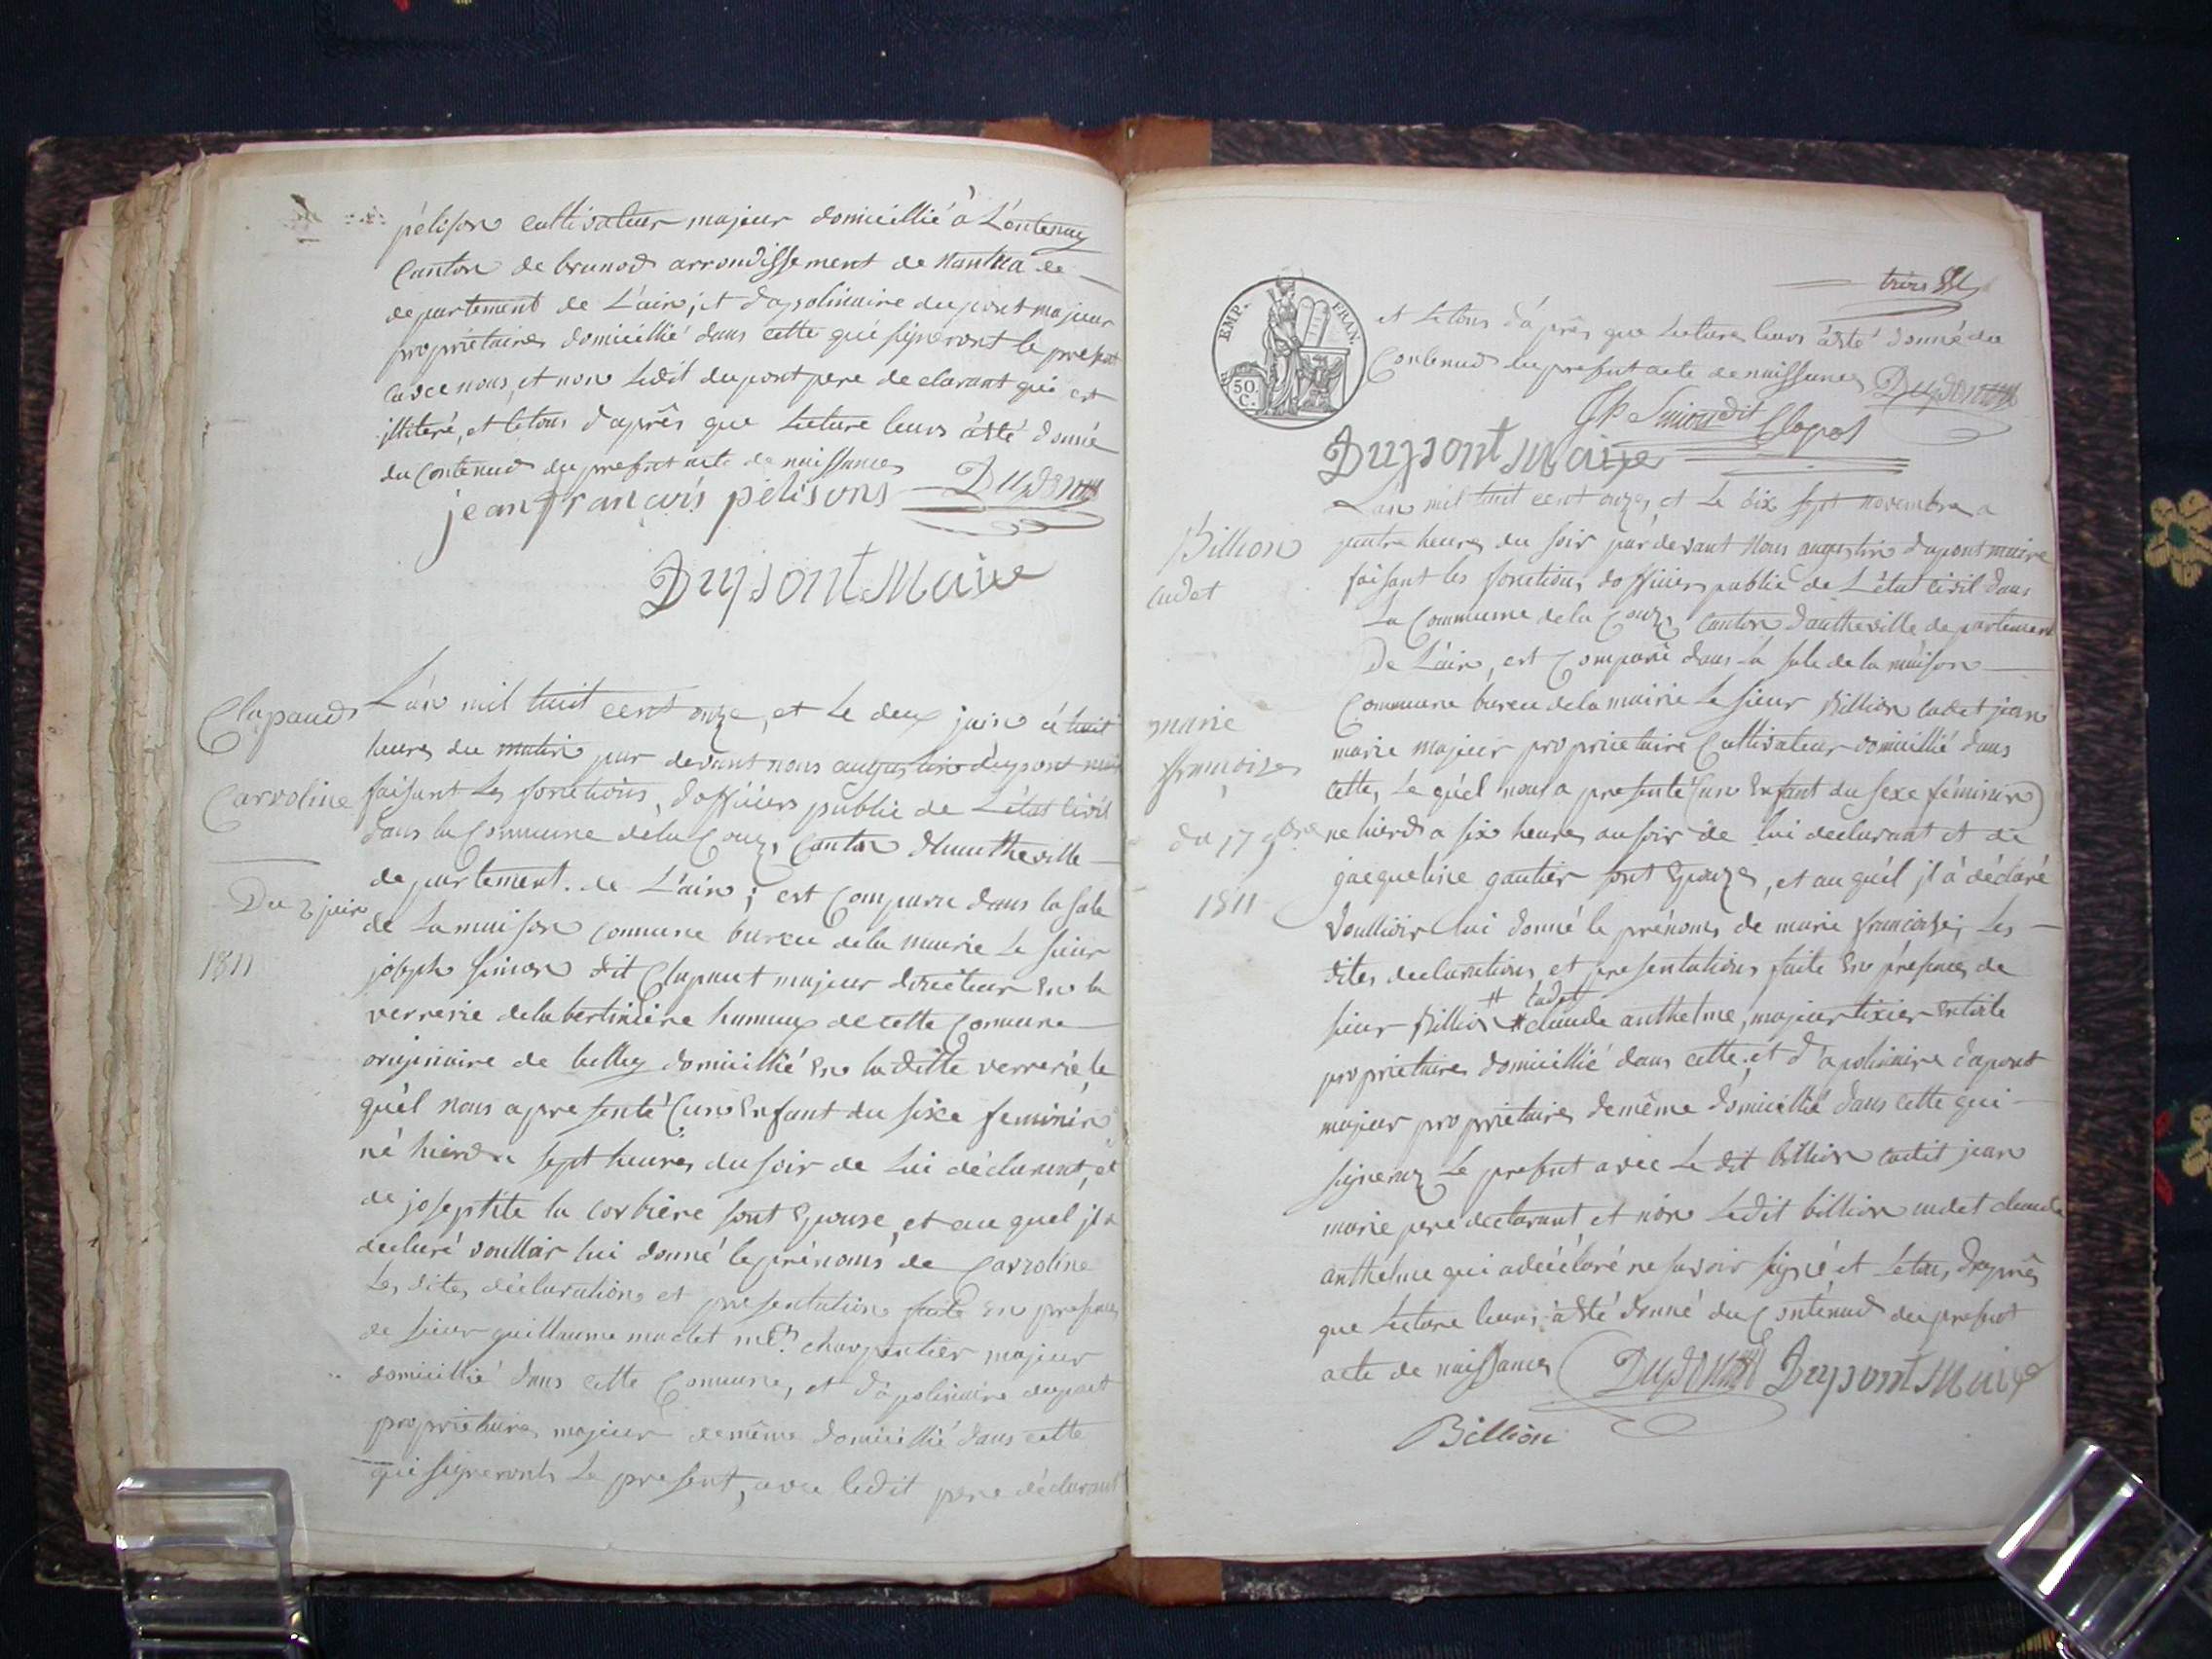 pélison cultivateur majeur domicillié à Lontenay
Canton de brunod arrondissement de Nantua de
departement de L'ain; et d'apolinaire dupont majeur
propriétaire domicillié dans cette qui signeront le present
avec nous, et non Ledit dupont pere declarant qui est
illiteré, et letous d'après que Lecture leurs àété donné
du Contenud du present acte de naissance Dupont
jean françois pelisons
Dupont Maire
Clapaud
Carroline
Du 2 juin
1811
L'an mil huit cent onze, et Le deux juin à huit
heures du matin par devant nous augustin dupont maire
faisant Les fonctions, dofficiers public de L'état Civil
dans la Commune dela Couz, Canton dhautheville
departement de L'ain; est Comparu dans la sale
de La maison commune bureau dela mairie Le sieur
joseph simon dit Clapaut majeur directeur En la
verrerie delabertinière hameau de cette Comune
originaire de belley domicillié En ladite verrerie, le
quèl nous apresenté (un Enfant du sexe feminin
né hierd a sept heures du soir de Lui déclarant, et
de joseptite la corbiere sont Epouse, et au quel jl a
declaré voulloir lui donné le prénoms de Carroline
Les dites déclarations et presentations faite En presence
de sieur guillaume maclet charpentier majeur
domicillié dans cette Comune, et d'apolinaire dupont
propriétaire majeur demême domicillié dans cette
qui signeronts Le present, avec ledit pere déclarant
EMP. FRAN.
50. C.
et Letous d'après que Lecture leurs àété donné du
Contenud du present acte de naissance Dupont
Jph Simon dit Clapot
Dupont Maire
Billion
cadet
marie
françoise
du 17 9bre
1811
L'an mil huit cent onze, et Le dix sept novembre a
quatre heures du soir par devant Nous augustin dupont maire
faisant les fonctions dofficiers public de L'état Civil dans
La Commune dela Couz, Canton dautheville departement
De L'ain, est Comparû dans La sale de la maison
Commune bureu dela mairie Le sieur Billion cadet jean
marie majeur proprietaire Cultivateur domicillié dans
cette, Le quèl nous a presenté (un Enfant du sexe féminin)
ne hierd a six heures au soir de lui declarant et de
jacqueline gautier sont Epouze, et au quèl jl à déclaré
voulloir lui donné le prénoms de marie françoise; Les
dites declarations et presentations faite En présence de
sieur Billion # cadet claude anthelme, majeur tixier En toile
propriétaire domicillié dans cette, et d'apolinaire dupont
majeur propriétaire demême domicillié dans cette qui
signeronz Le present avec Le dit billion cadet jean
marie pere declarant et nòn Ledit billion cadet claude
anthelme qui a déclaré ne savoir signé, et Letous, d'après
que Lecture leurs àété donné du Contenud du present
acte de naissance Dupont Dupont Maire
Billion